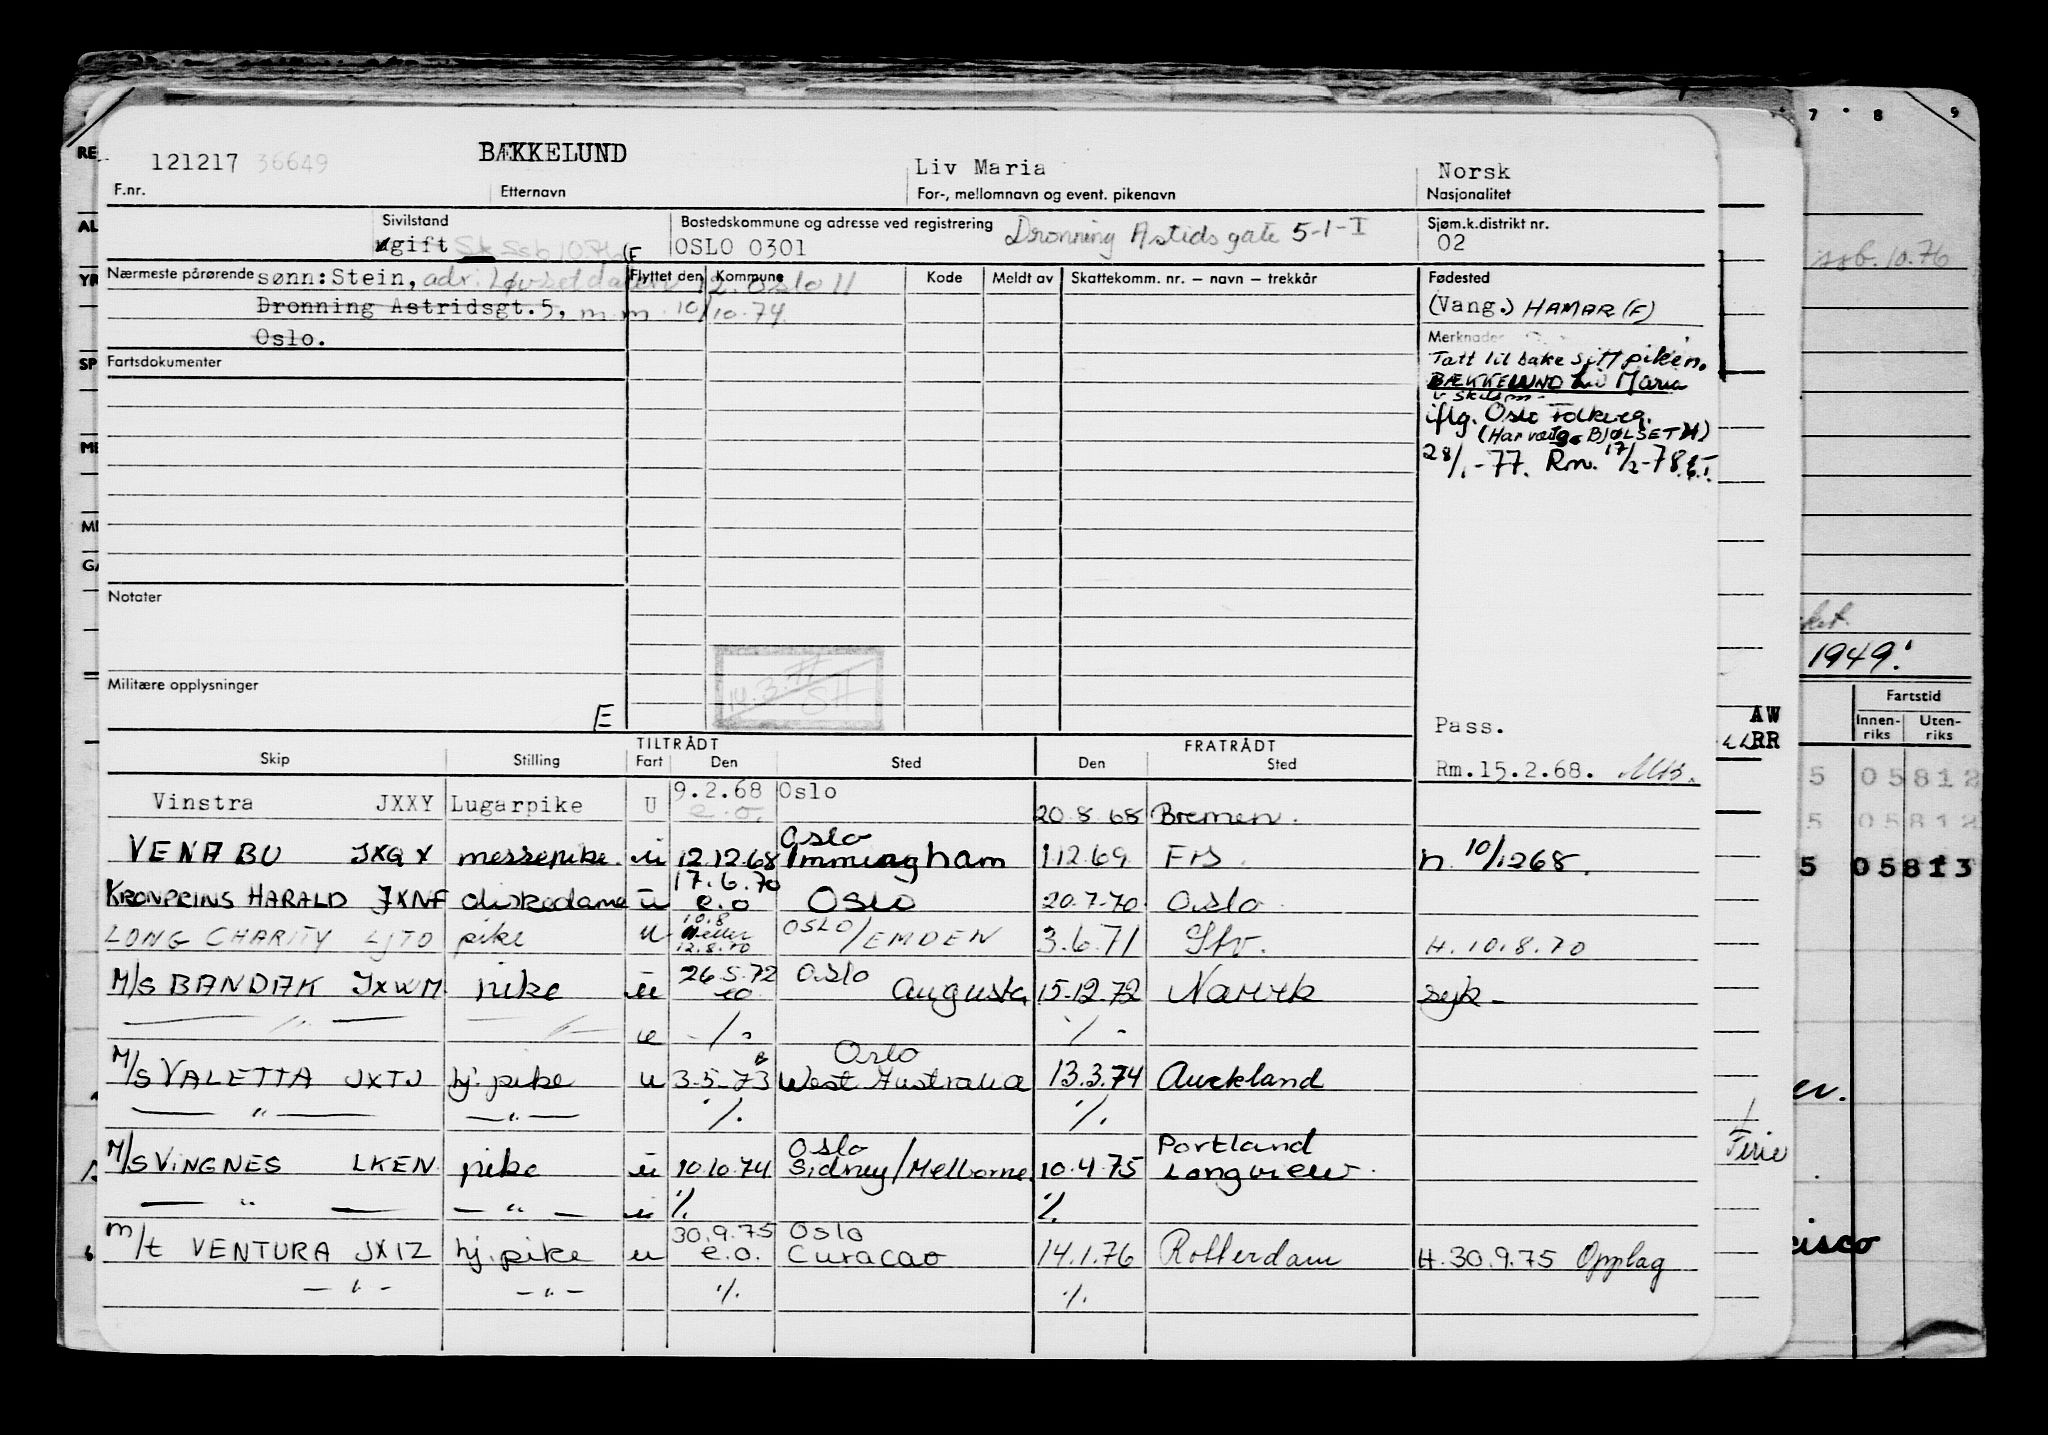 121217 36649 BÆKKELUND Liv Maria Norsk
F.nr. Etternavn For-, mellomnavn og event. pikenavn Nasjonalitet
Sivilstand Bostedskommune og adresse ved registrering Dronning Astids gate 5-1-I Sjøm.k.distrikt nr.
ugift OSLO 0301 02
Nærmeste pårørende sønn:Stein, adr. Flyttet den Kommune Kode Meldt av Skattekomm. nr. – navn – trekkår Fødested
Dronning Astridsgt.5, m.m. 10/10.74. (Vang.) HAMAR (F)
Oslo. Merknader
Fartsdokumenter Tatt til bake sitt piken.
BÆKKELUND Liv Maria
v skilsm.
iflg. Oslo Folkereg.
(Har vært g. BJØLSETH)
28/1-77. Rm. 17/2-78
Notater
14.3.77
Militære opplysninger
E
Pass.
Rm.15.2.68.
TILTRÅDT FRATRÅDT
Skip Stilling Fart Den Sted Den Sted
Vinstra JXXY Lugarpike U 9.2.68 e.o. Oslo 20.8.68 Bremen.
VENABU JXQX messepike. u 12.12.68 Oslo Immingham 1.12.69 Frs. h. 10/1268.
KRONPRINS HARALD JXNF diskedame u 17.6.70 e.o Oslo 20.7.70 Oslo
LONG CHARITY LJTO pike u 10.8 eller 12.8.70 OSLO/EMDEN 3.6.71 Stv. H. 10.8.70
M/S BANDAK JXWM pike u 26.5.72 eo Oslo Augusta 15.12.72 Narvik syk-
— " — — " — u -/- -/-
M/S VALETTA JXTJ hj. pike u 3.5.73 Oslo West Australia 13.3.74 Auckland
— " — — " — ./. ./.
M/S VINGNES LKEN pike u 10.10.74 Oslo Sidney/Melborne. 10.4.75 Portland Longview.
— " — — " — u ./. ./.
m/t VENTURA JXIZ hj. pike u 30.9.75 e.o. Oslo Curacao 14.1.76 Rotterdam H.30.9.75 Opplag
— " — — " — ./. ./.
7 8 9
ssb.10.76
1949.
Fartstid
Innenriks Utenriks
AW
RR
5 05812
5 05812
5 05813
Ferie